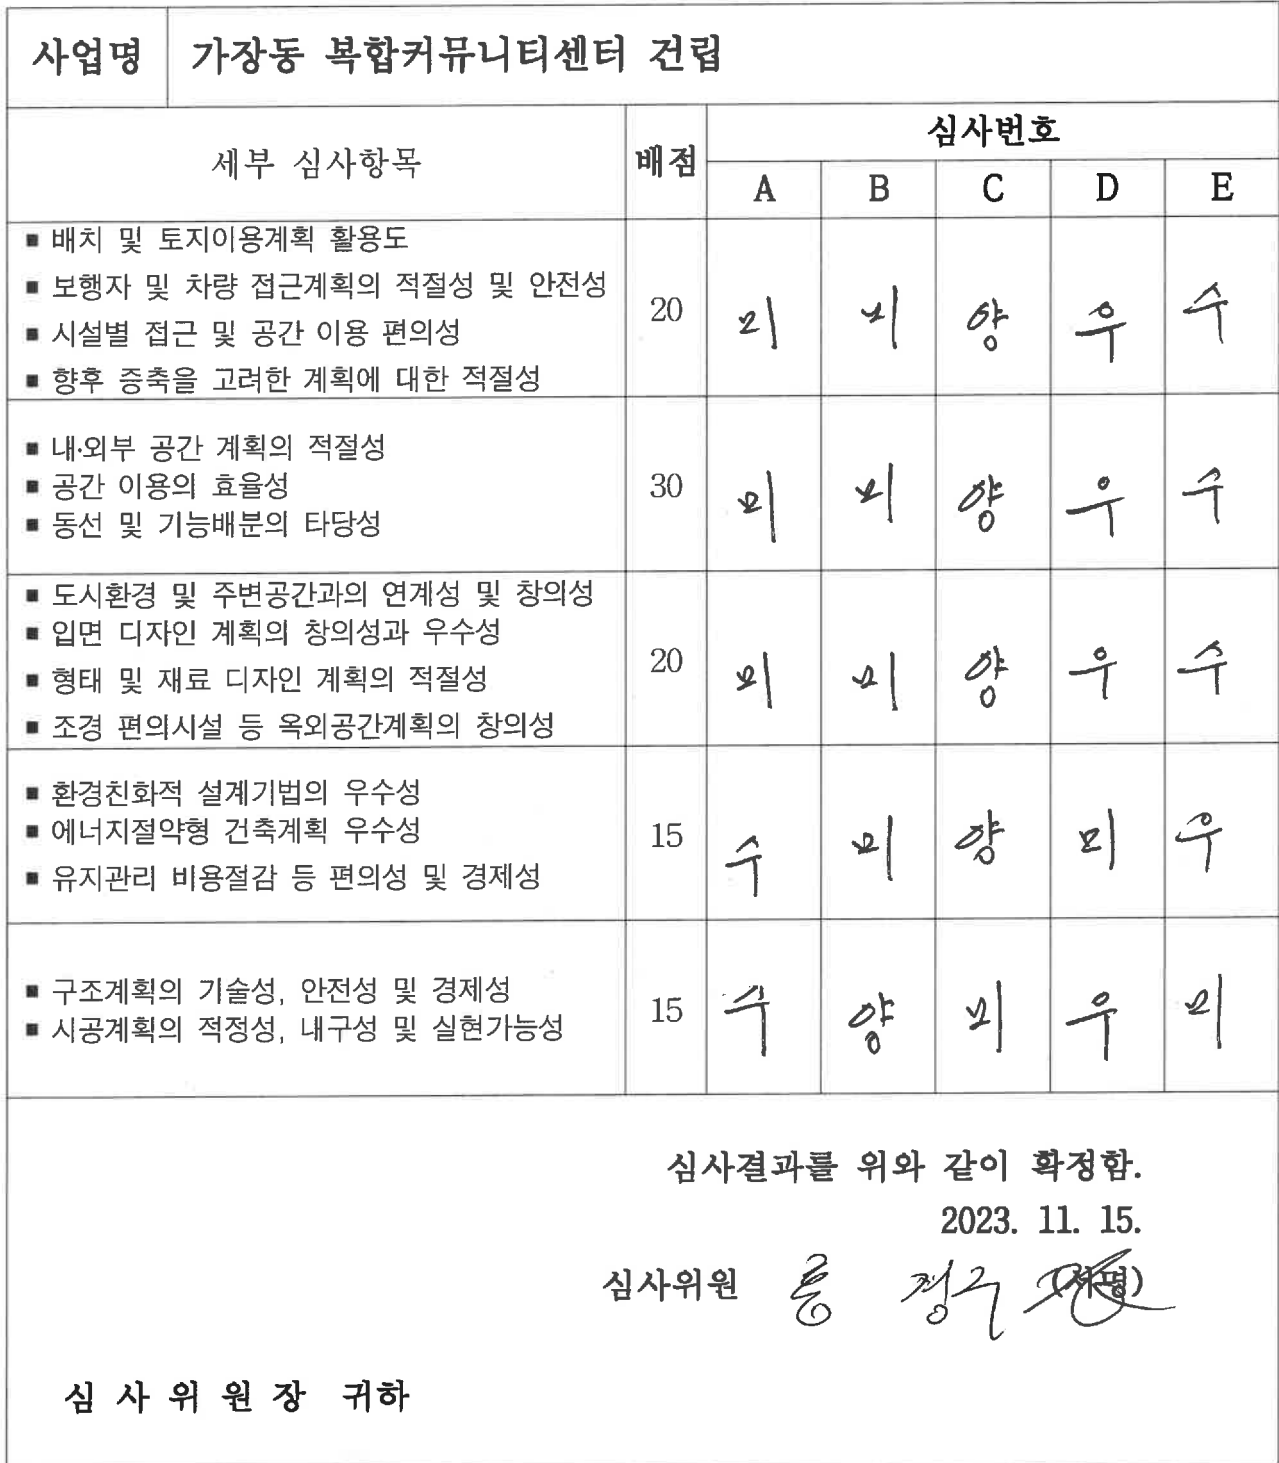 사업명 가장동 복합커뮤니티센터 건립
세부 심사항목 배점 심사번호
A B C D E
■ 배치 및 토지이용계획 활용도
■ 보행자 및 차량 접근계획의 적절성 및 안전성
■ 시설별 접근 및 공간 이용 편의성
■ 향후 증축을 고려한 계획에 대한 적절성
20 미 미 양 우 수
■ 내·외부 공간 계획의 적절성
■ 공간 이용의 효율성
■ 동선 및 기능배분의 타당성
30 미 미 양 우 수
■ 도시환경 및 주변공간과의 연계성 및 창의성
■ 입면 디자인 계획의 창의성과 우수성
■ 형태 및 재료 디자인 계획의 적절성
■ 조경 편의시설 등 옥외공간계획의 창의성
20 미 미 양 우 수
■ 환경친화적 설계기법의 우수성
■ 에너지절약형 건축계획 우수성
■ 유지관리 비용절감 등 편의성 및 경제성
15 수 미 양 미 우
■ 구조계획의 기술성, 안전성 및 경제성
■ 시공계획의 적정성, 내구성 및 실현가능성
15 수 양 미 우 미
심사결과를 위와 같이 확정함.
2023. 11. 15.
심사위원
심 사 위 원 장 귀하